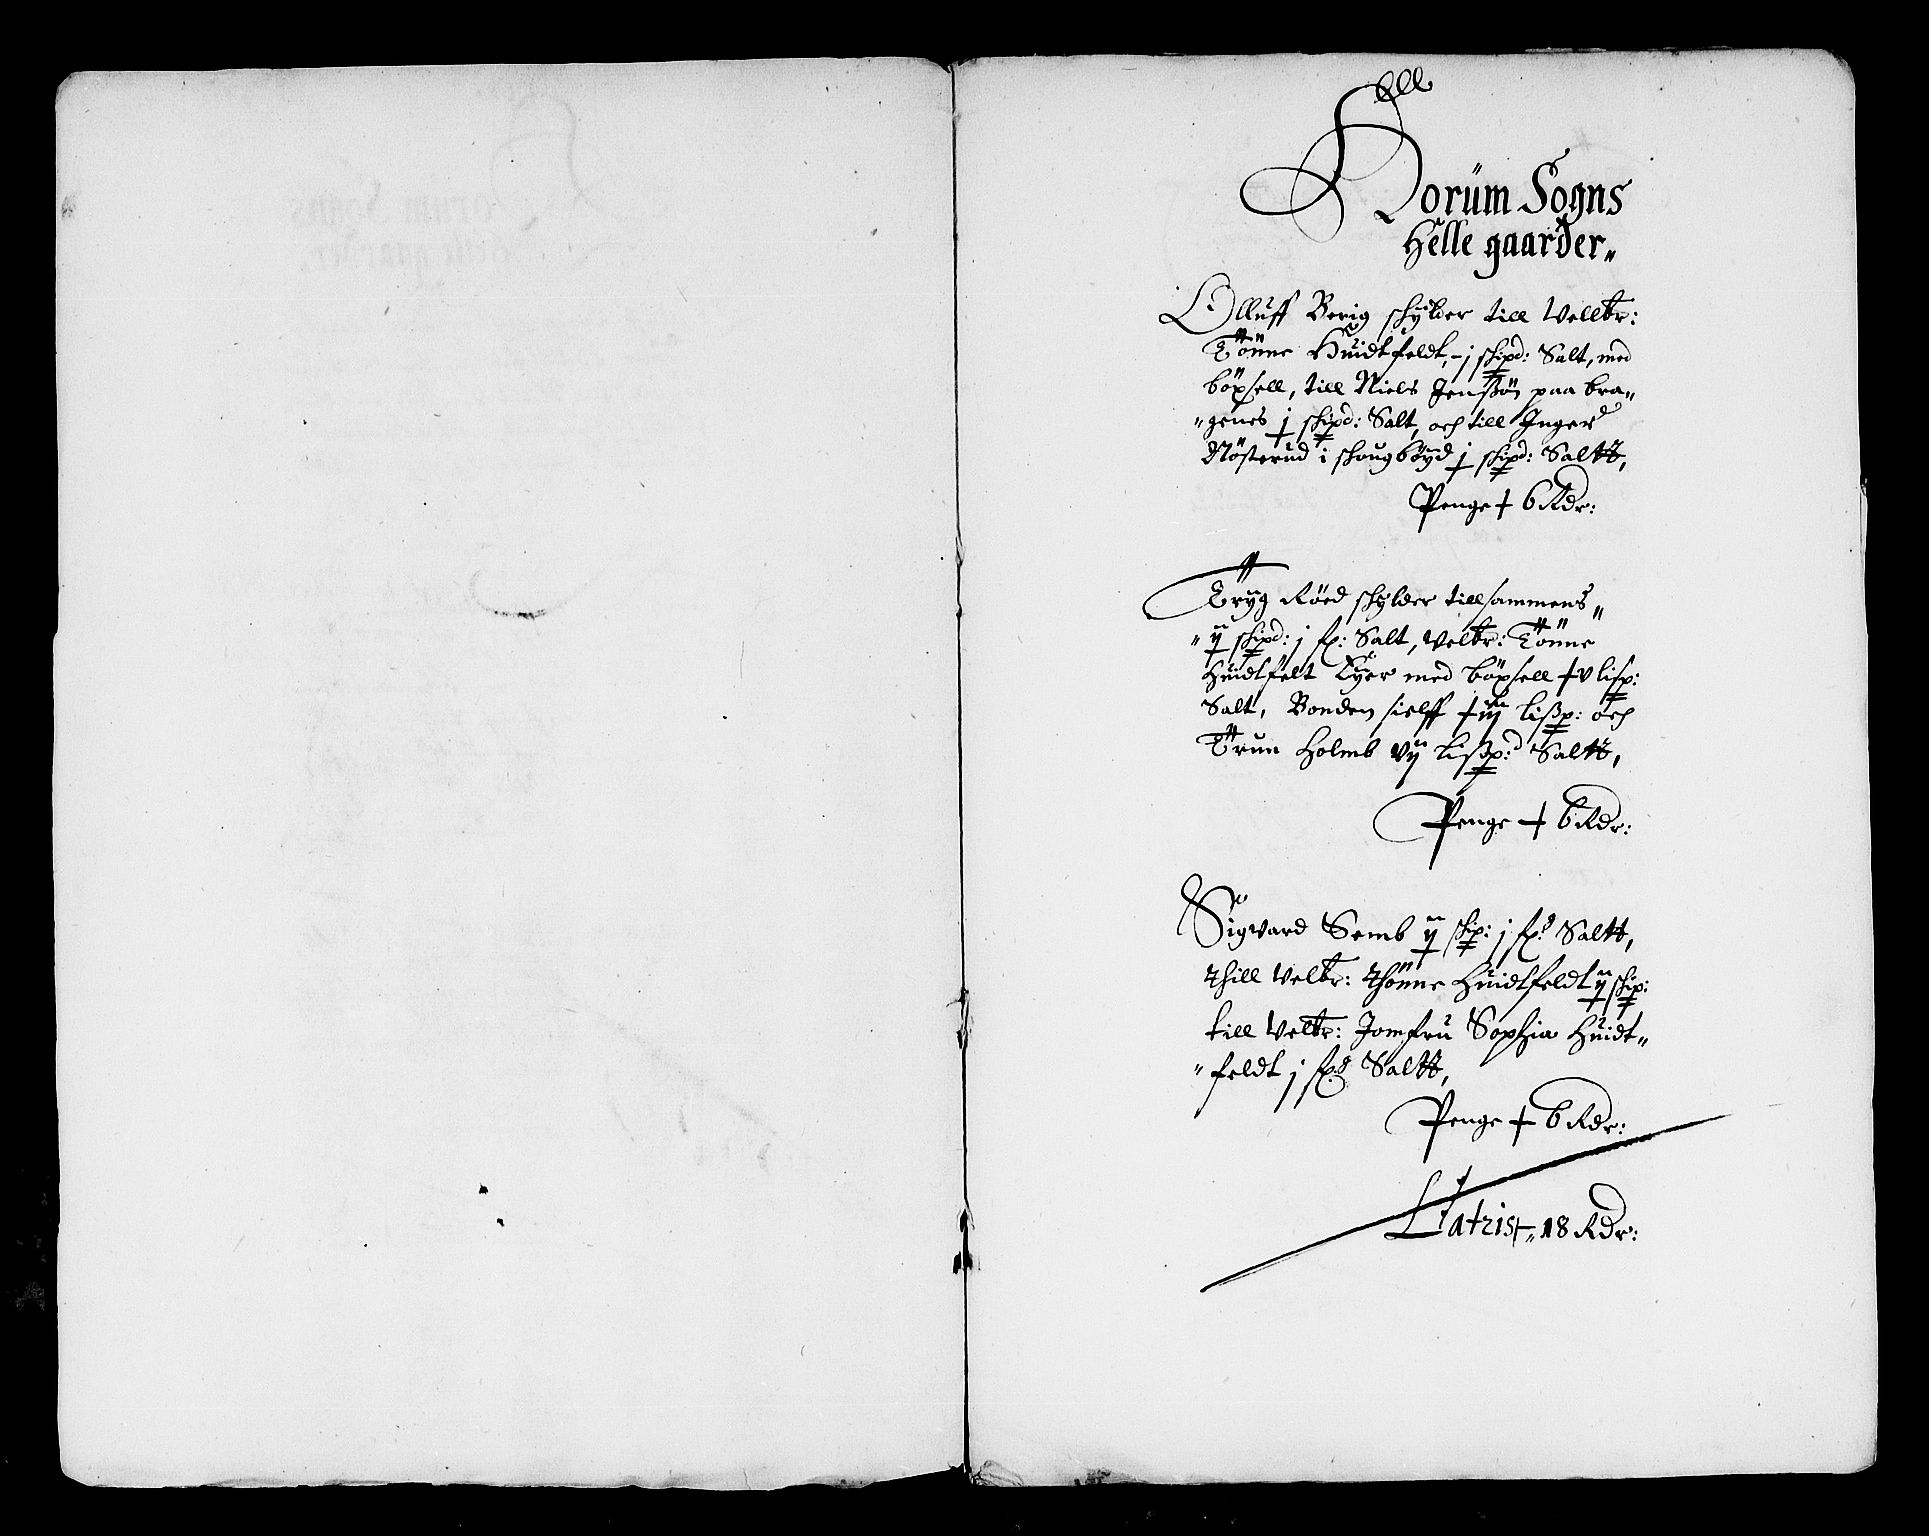 Horüm Sogns
Helle gaarder„
Olluff Berig schÿlder till Velbr:
Tönne Huidtfeldt, - j schipd: Salt, med
böxsell, till Niels Jenßön paa bra„
„genes j schipd: Salt, och till Inger
Nösterud i schougböÿd j schipd: Saltt,
Penge + 6 Rdr:
Tryg Röed schylder tillsammens„
„ij schipd: j fr: Salt, Velbr: Tönne
Huidtfelt Eÿer med böxsell + v lisp:
Salt, Bonden sielff + iij lißp: och
Trun Holmb vij lißp:d Saltt,
Penge + 6 Rdr:
Sigvard Semb ij schip: j fr: Saltt,
thill Velbr: Thönne Huidtfeldt ij schip:
till Velbr: Jomfru Sophia Huidt„
„feldt j fr: Saltt,
Penge + 6 Rdr:
Latris +„ 18 Rdr: